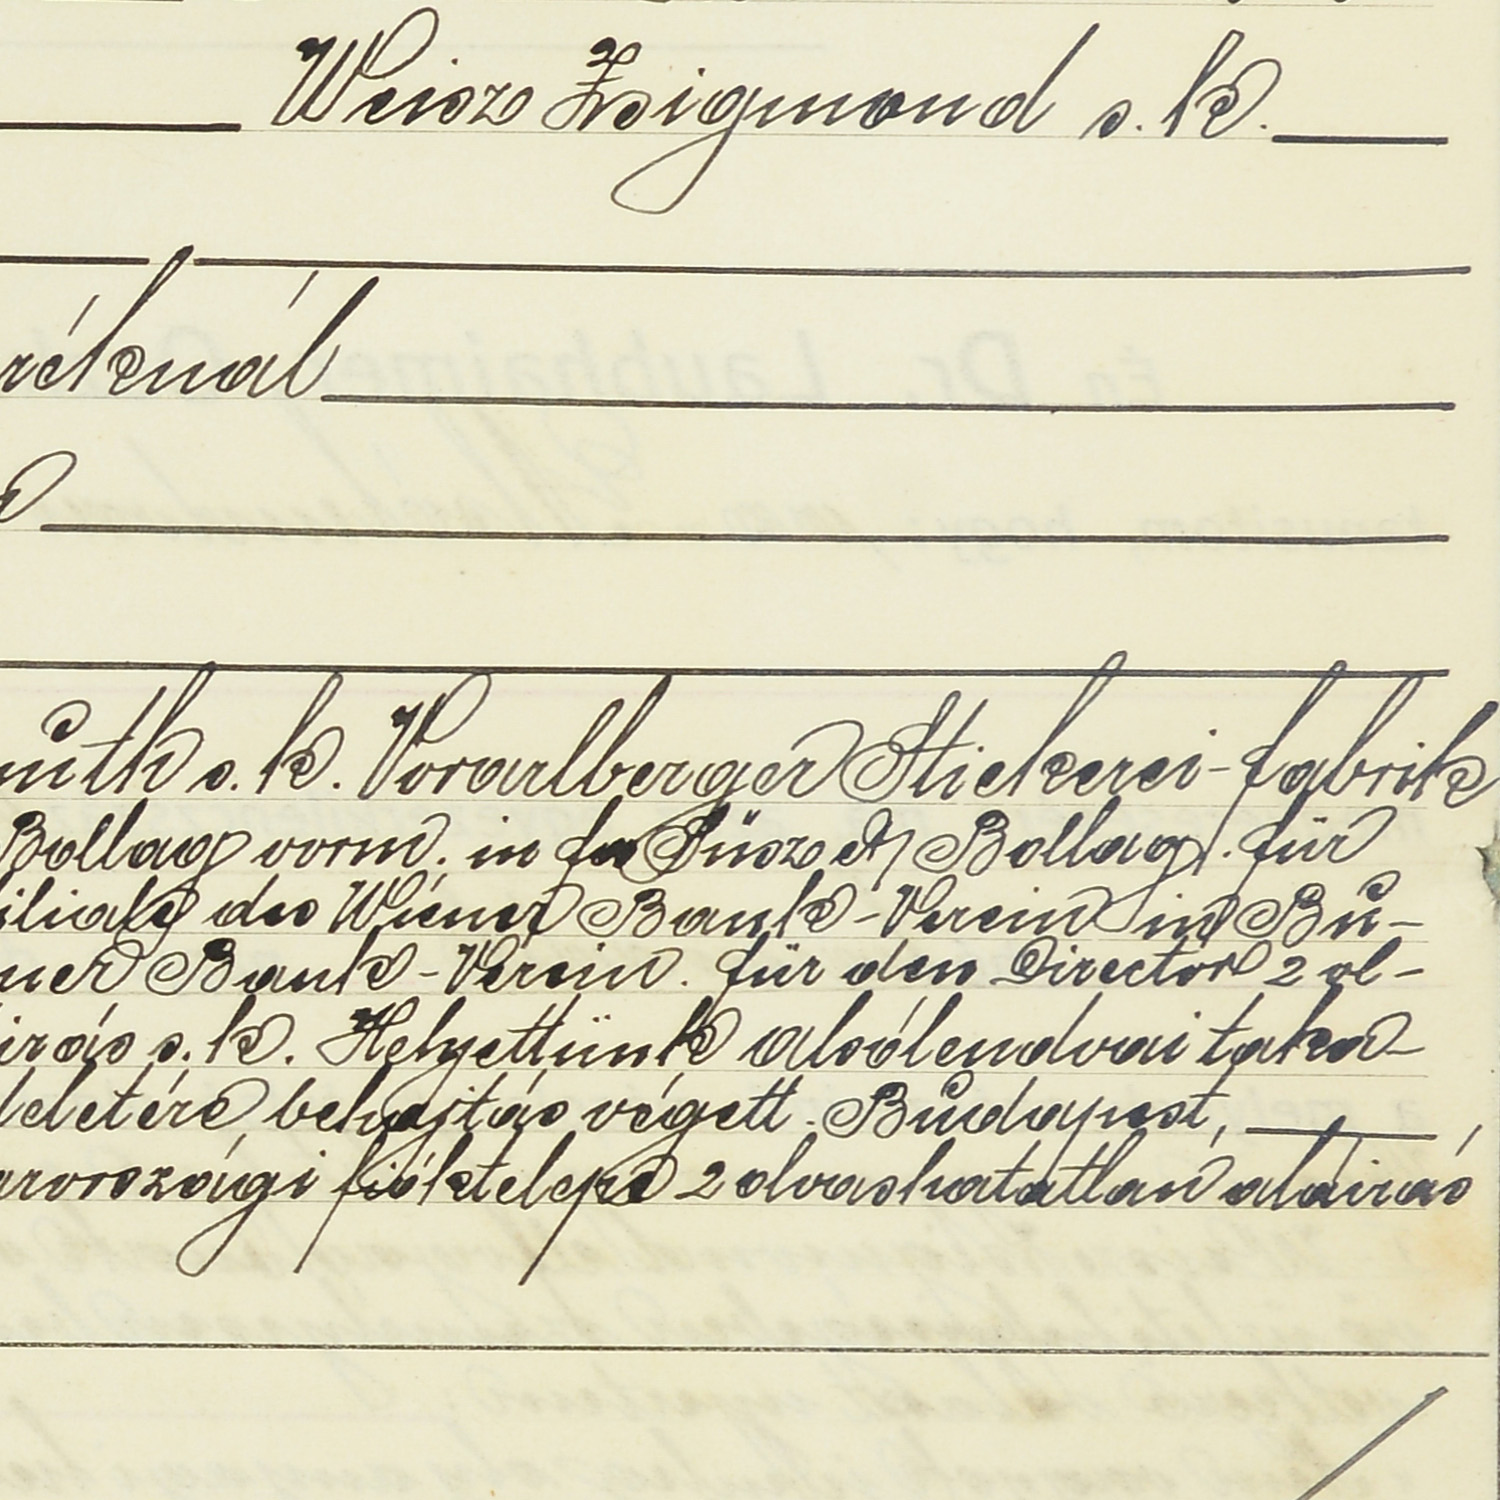 Weisz Zsigmond s. k.
réknál
uth s. k. Vorarlberger Stickerei-fabrik
Bollag vorm. in fa Süsz et Bollag. für
iliale des Wiener Bank-Verein in Bu-
ner Bank-Verein. für den Director 2 ol-
irás s. k. Helyettünk alsólendvai taka-
letéré behajtás végett. Budapest,
arországi fióktelepe 2 olvashatatlan aláirás